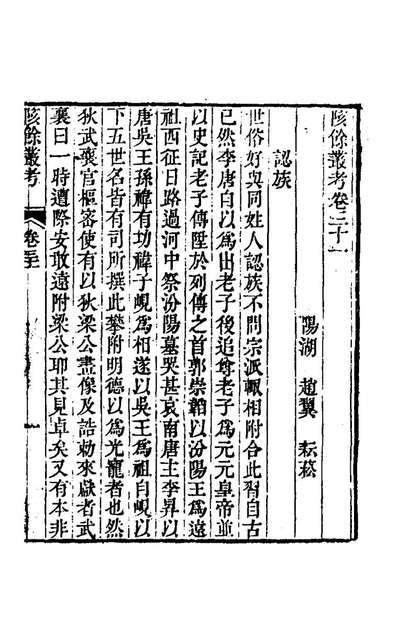 陔餘叢考卷三十一
陽湖 趙翼 耘菘
認族
世俗好與同姓人認族不問宗派輒相附合此習自古
已然李唐自以爲出老子後追尊老子爲元元皇帝並
以史記老子傳陞於列傳之首郭崇韜以汾陽王爲遠
祖西征日路過河中祭汾陽墓哭甚哀南唐主李昪以
唐吳王孫禕有功禕子峴爲相遂以吳王爲祖自峴以
下五世名皆有司所撰此攀附明德以爲光寵者也然
狄武襄官樞密使有以狄梁公畫像及誥勅來獻者武
襄曰一時遭際安敢遠附梁公耶其見卓矣又有本非
陔餘叢考
卷三十一
一